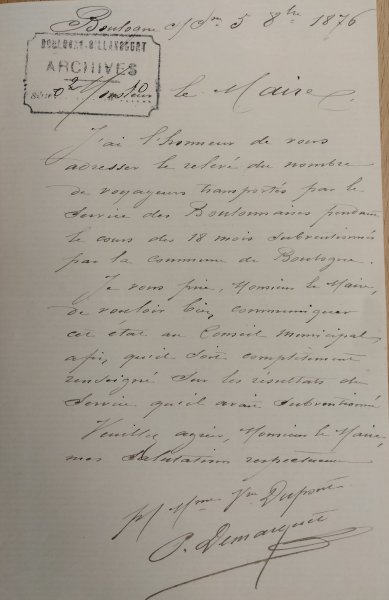 Boulogne s/Sne 5 8bre 1876
BOULOGNE-BILLANCOURT
ARCHIVES
Monsieur le Maire,
J'ai l'honneur de vous
adresser le relevé du nombre
de voyageurs transportés par le
Service des Boulonnaises pendant
le cours des 18 mois subventionnés
par la commune de Boulogne.
Je vous prie, Monsieur le Maire,
de vouloir bien communiquer
cet état au Conseil municipal
afin qu'il soit complètement
renseigné sur les résultats du
Service qu'il avait subventionné
Veuillez agréer, Monsieur le Maire,
mes salutations respectueuses
pr Mme Vve Dupont
P. Demarquet